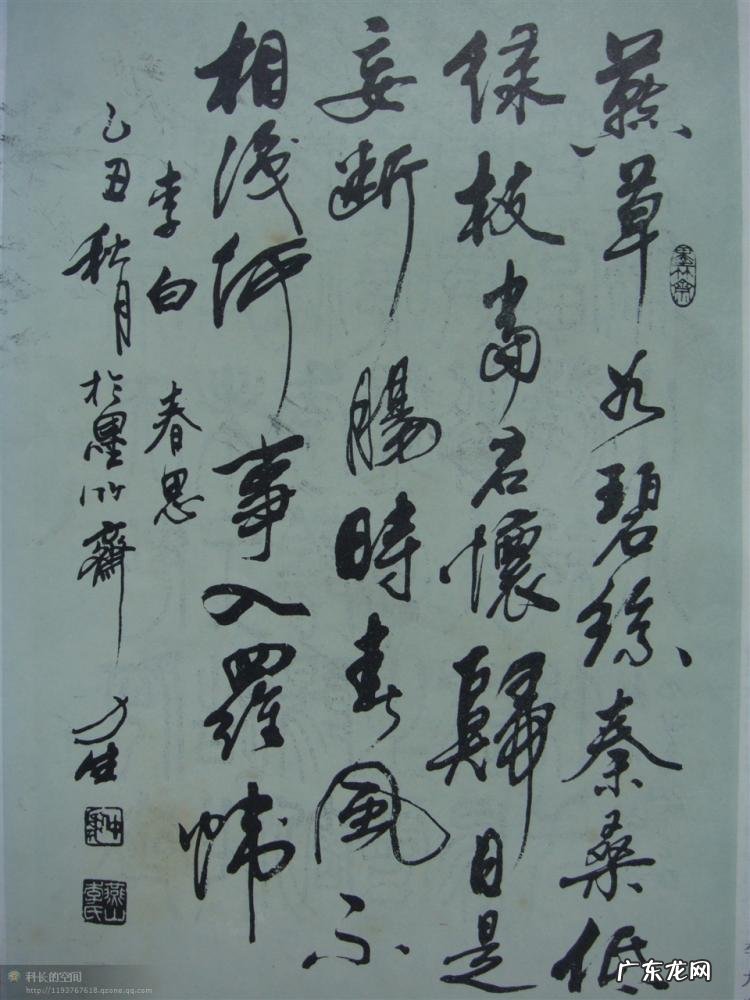 墨竹齋
燕草如碧絲秦桑低
绿枝當君懷歸日是
妾断腸時春風不
相識何事入羅幃
李白 春思
乙丑秋月於墨竹齋 力生
燕山李氏
科长的空间
http://1193767618.qzone.qq.com/
广东龙网